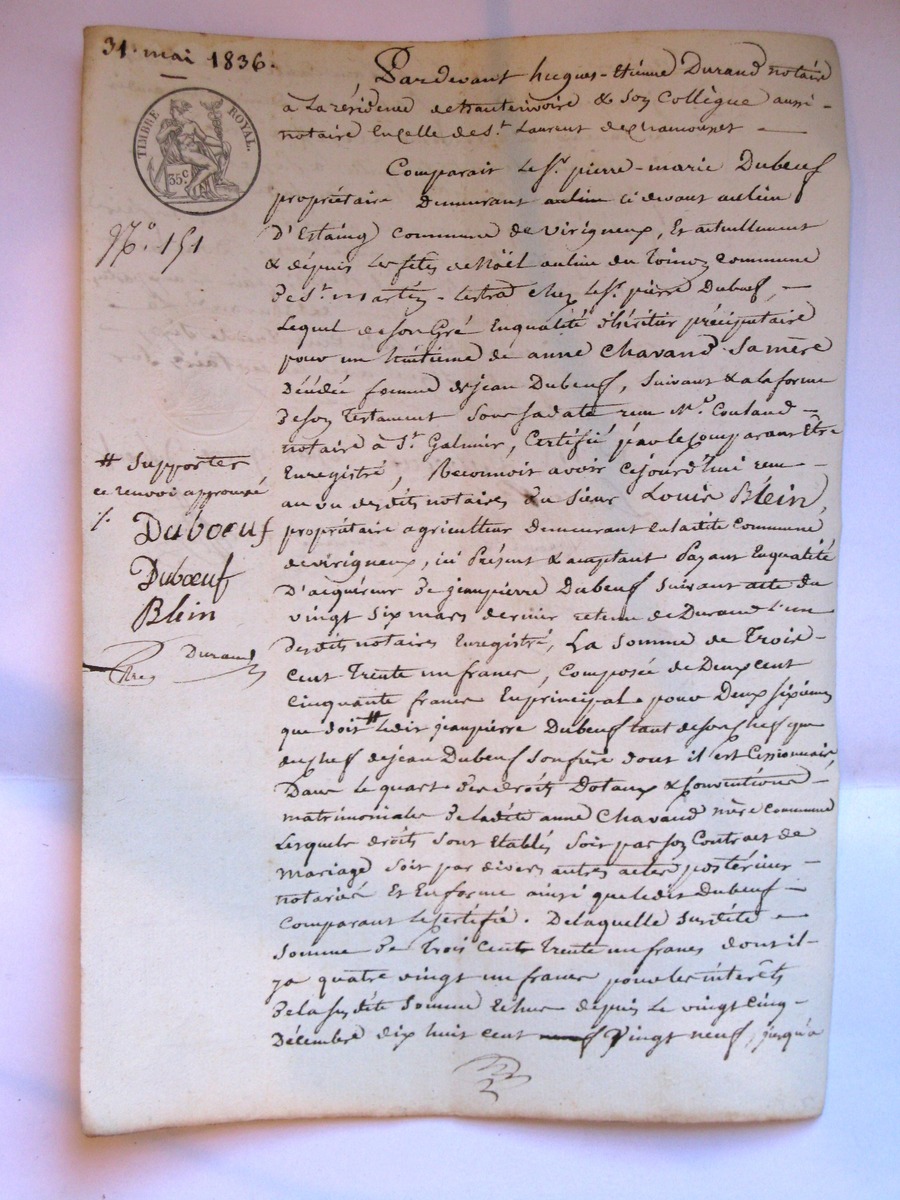 31. mai 1836.
TIMBRE ROYAL.
35 c
N.o 151
Pardevant hugues-Etienne Durand notaire
à la résidence de hauterivoire & son Collègue aussi
notaire en celle de St. Laurent de chamousset
Comparait le Sr. pierre-marie Dubœuf
propriétaire demeurant ci devant au lieu
D'Estaing commune de virigneux, Et actuellement
& depuis les fêtes de Noël au lieu du Toinon commune
de St. martin-lestrad chez le Sr. pierre Dubœuf,
Lequel de son Gré En qualité d'héritier préciputaire
pour un huitième de anne Chavand sa mère
Décédée femme de jean Dubœuf, suivant & a la forme
de son Testament sous sa date reçu Me. Couland
notaire à St. Galmier, Certifié par le Comparant Etre
Enregistré, Reconnoit avoir cejourd'hui reçu
au vu desdits notaires du sieur Louis Blein,
propriétaire agriculteur demeurant en ladite Commune
de virigneux, ici Présent & acceptant Payant En qualité
D'acquéreur de jeanpierre Dubœuf suivant acte du
vingt six mars dernier retenu de Durand l'un
desdits notaires Enregistré, La somme de Trois
cent Trente un francs, Composée de Deux cent
Cinquante francs En principal pour Deux sixièmes
que doit # ledit jeanpierre Dubœuf tant de son chef que
du chef de jean Dubœuf son frère dont il est Cessionnaire,
Dans le quart des droits Dotaux & Conventions
matrimoniales de ladite anne Chavand mère commune
Lesquels droits sont Etablis soit par son Contract de
mariage soit par divers autres actes postérieurs
notariés Et En forme ainsi que ledit Dubœuf
Comparant le Certifie. De laquelle susdite
somme de Trois Cent Trente un francs dont il
ya quatre vingt un francs pour les intérêts
de la susdite somme Echus depuis le vingt Cinq
Décembre dix huit cent vingt neuf, jusqu'a
# Supporter
ce renvoi approuvé
Dubœuf
Dubœuf
Blein
Durand